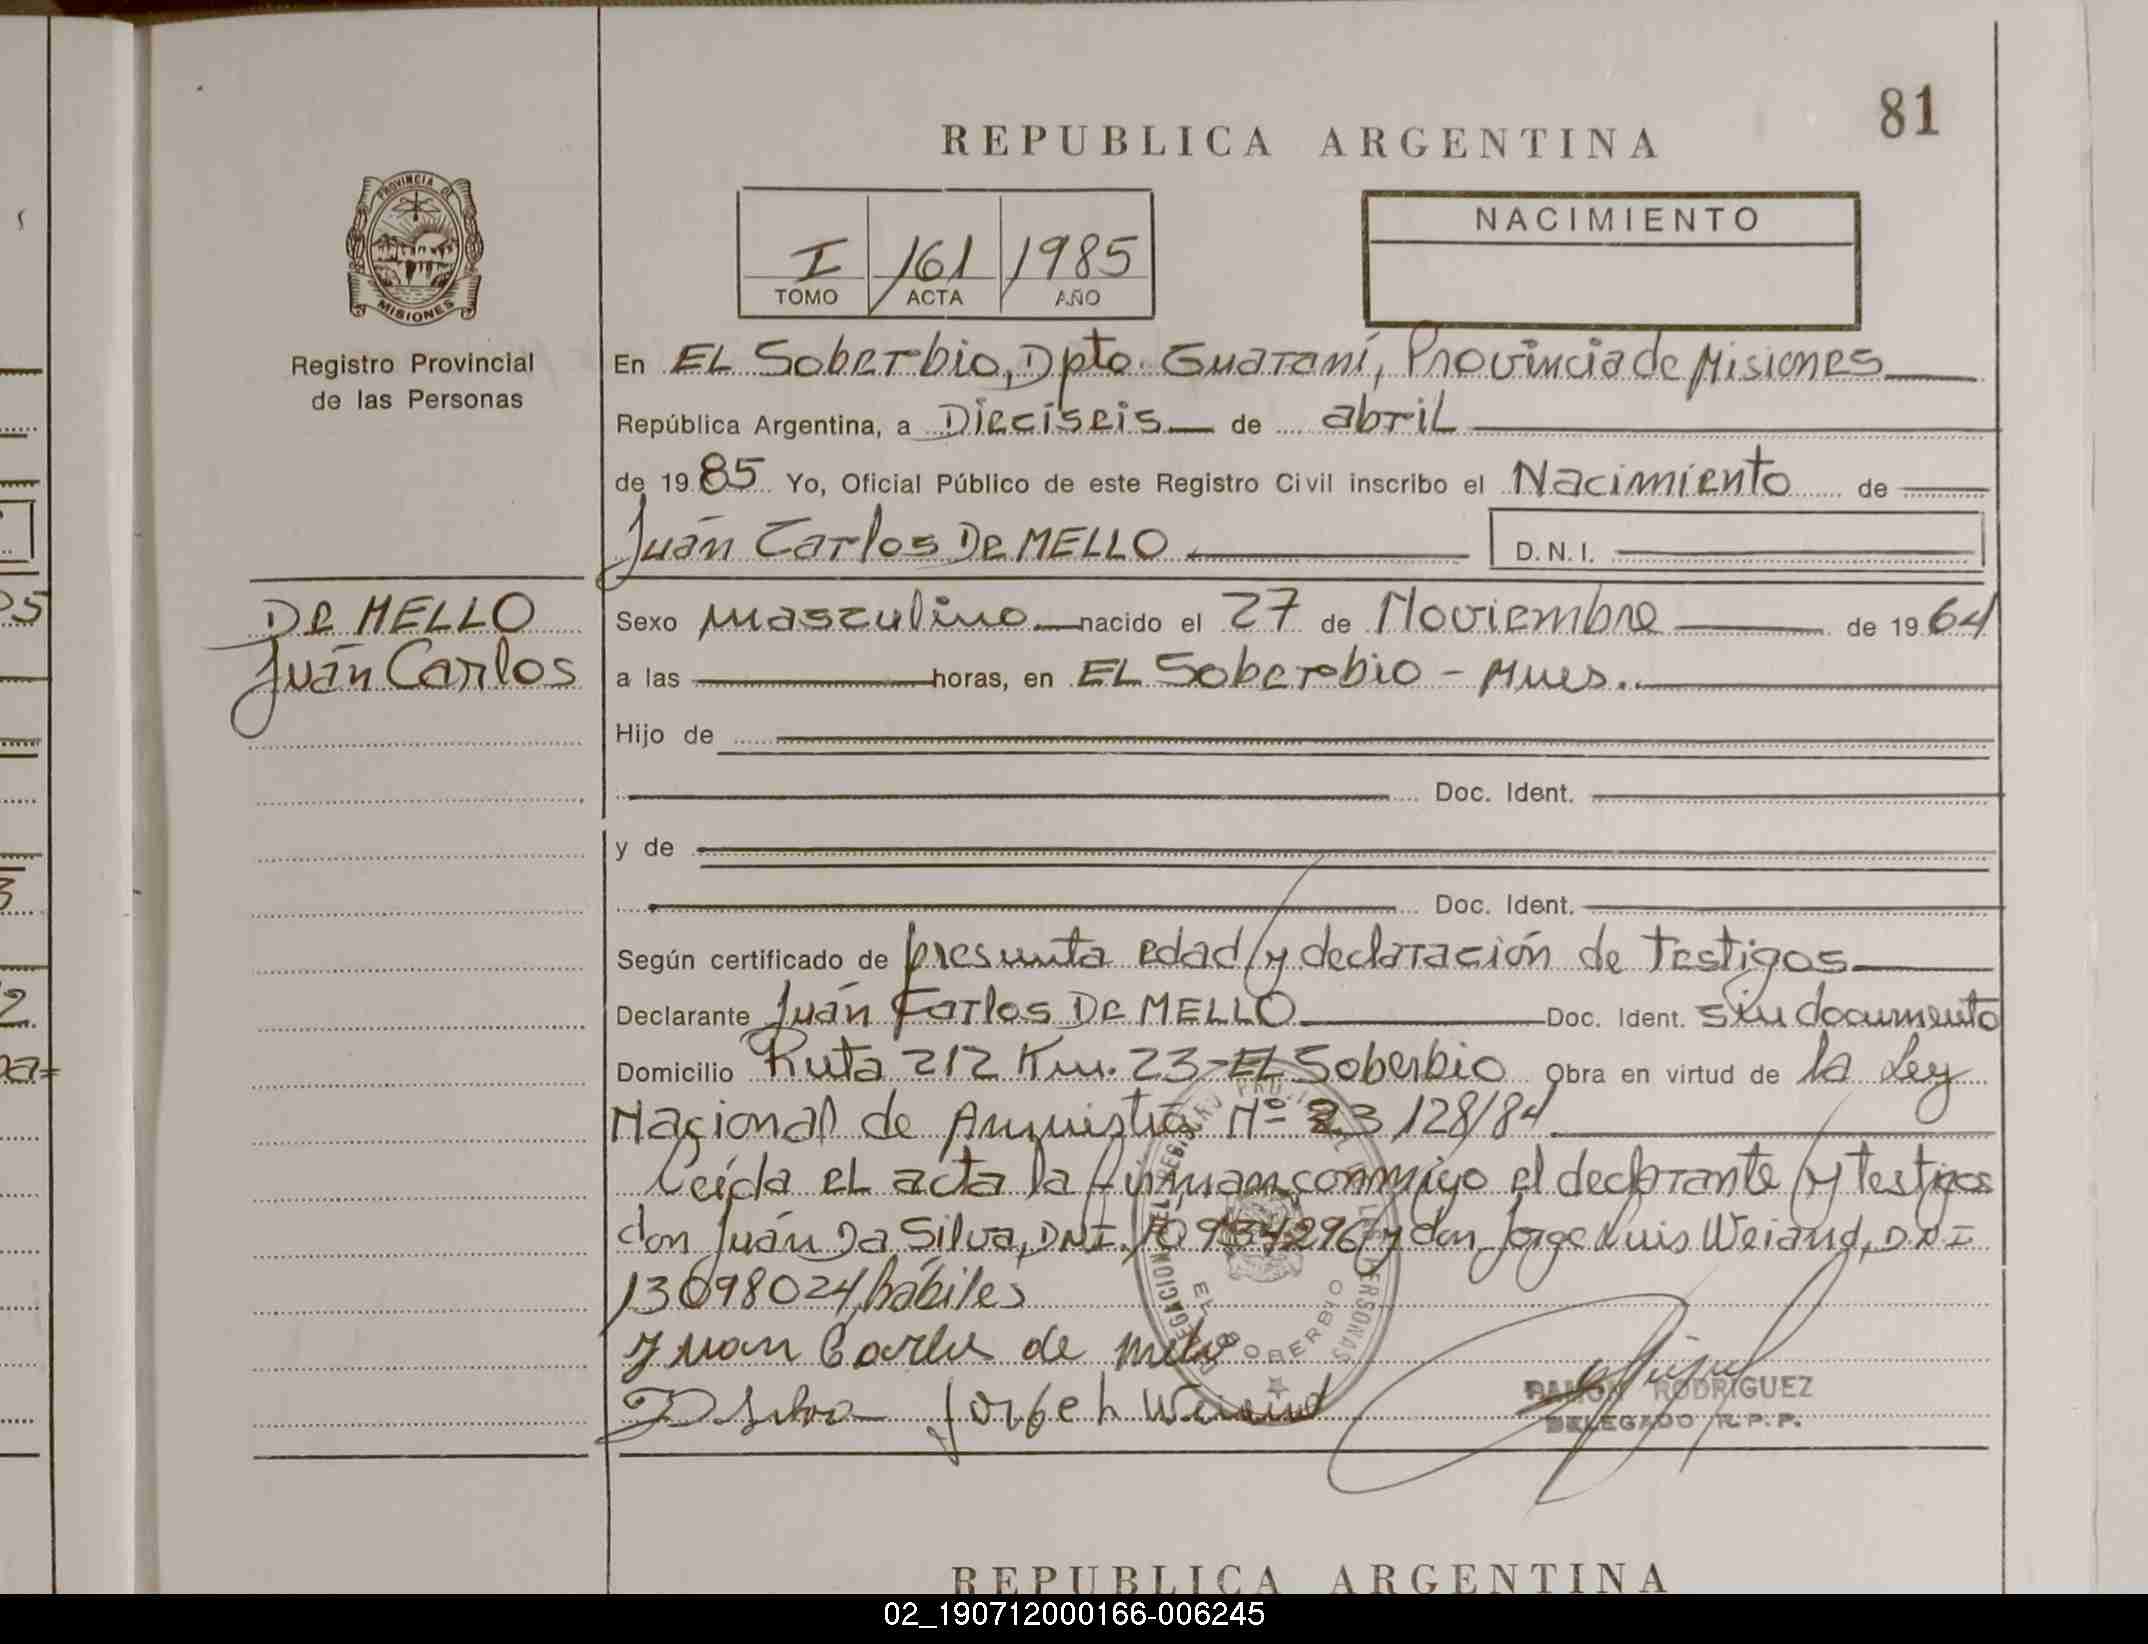 81
REPUBLICA ARGENTINA
PROVINCIA DE
MISIONES
I 161 1985
TOMO ACTA AÑO
NACIMIENTO
Registro Provincial
de las Personas
En EL Soberbio, Dpto. Guaraní, Provincia de Misiones
República Argentina, a Dieciseis de abril
de 1985 Yo, Oficial Público de este Registro Civil inscribo el Nacimiento de
Juan Carlos De MELLO D.N.I.
De MELLO
Juan Carlos
Sexo masculino nacido el 27 de Noviembre de 1964
a las horas, en EL Soberbio - Mnes.
Hijo de
Doc. Ident.
y de
Doc. Ident.
Según certificado de presunta edad y declaración de testigos
Declarante Juan Carlos De MELLO Doc. Ident. sin documento
Domicilio Ruta 212 Km. 23 - EL Soberbio Obra en virtud de la Ley
Nacional de Amnistia Nº 23.128/84
Leída el acta la firman conmigo el declarante y testigos
don Juan Da Silva, DNI. 10934296 y don Jorge Luis Weiand, DNI
13098024, hábiles
Juan Carlos de mello
D Silva Jorge L Weiand
EL SOBERBIO
RAMON RODRIGUEZ
DELEGADO R.P.P.
REPUBLICA ARGENTINA
02_190712000166-006245